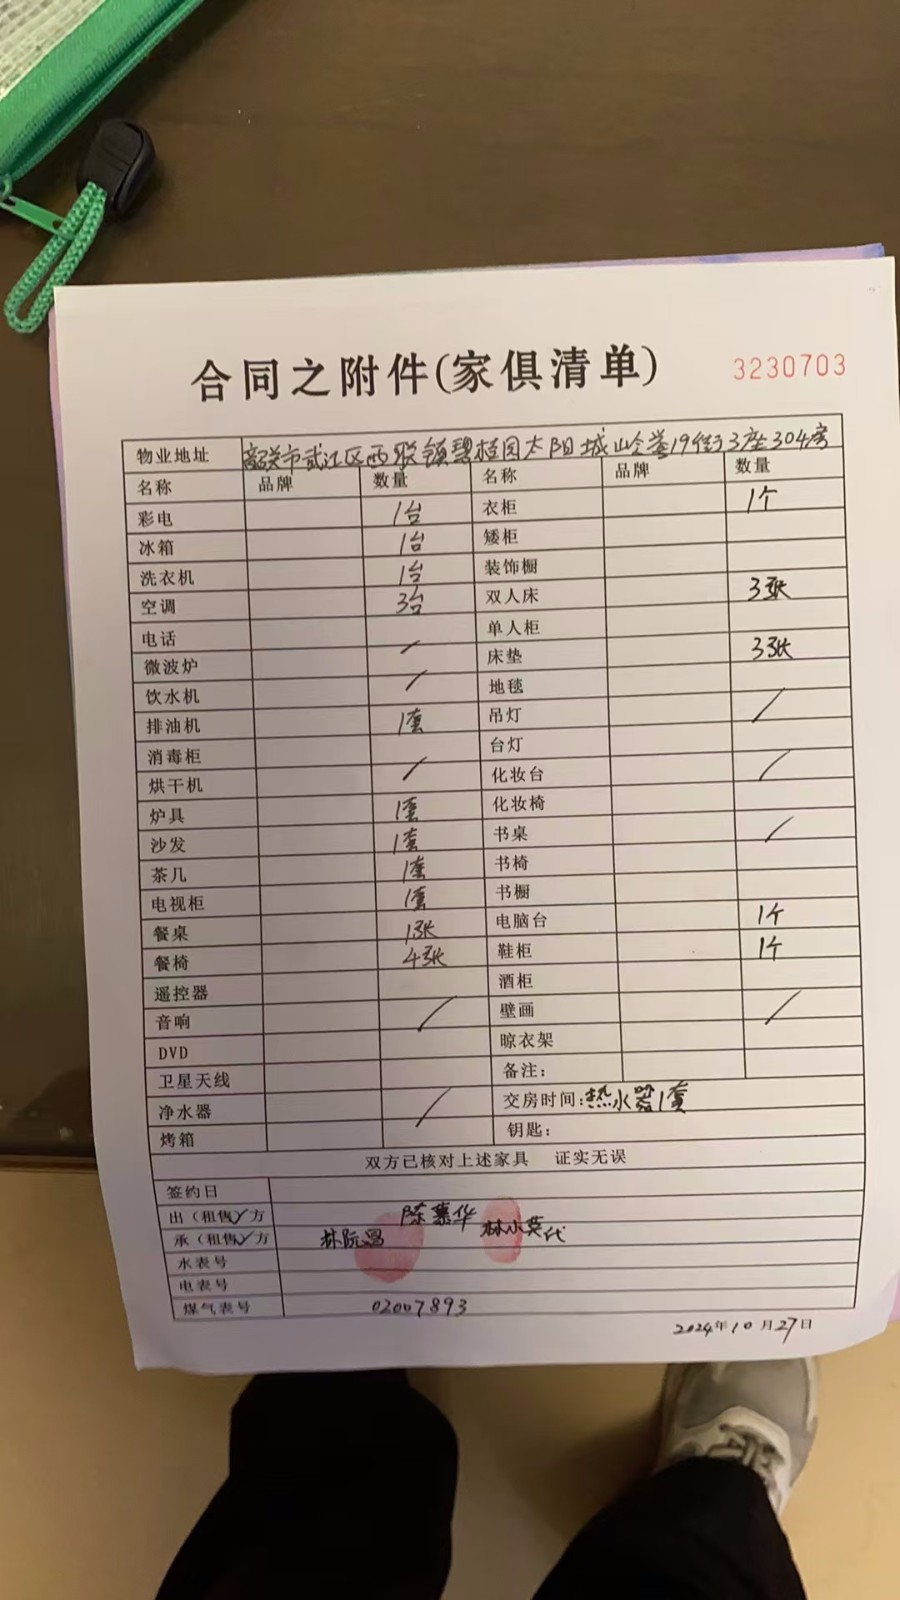 合同之附件(家俱清单) 3230703
物业地址 韶关市武江区西联镇碧桂园太阳城山公馆19街3座304房
名称 品牌 数量 名称 品牌 数量
彩电 1台 衣柜 1个
冰箱 1台 矮柜
洗衣机 1台 装饰橱
空调 3台 双人床 3张
电话 单人柜
微波炉 / 床垫 3张
饮水机 / 地毯
排油机 1套 吊灯 /
消毒柜 台灯
烘干机 / 化妆台 /
炉具 1套 化妆椅
沙发 1套 书桌 /
茶几 1套 书椅
电视柜 1套 书橱
餐桌 1张 电脑台 1个
餐椅 4张 鞋柜 1个
遥控器 酒柜
音响 / 壁画 /
DVD 晾衣架
卫星天线 备注:
净水器 / 交房时间:热水器1套
烤箱 钥匙:
双方已核对上述家具 证实无误
签约日
出(租售)方 陈 华 林小英代
承(租售)方 林阮
水表号
电表号
煤气表号 02007893
2024年10月27日